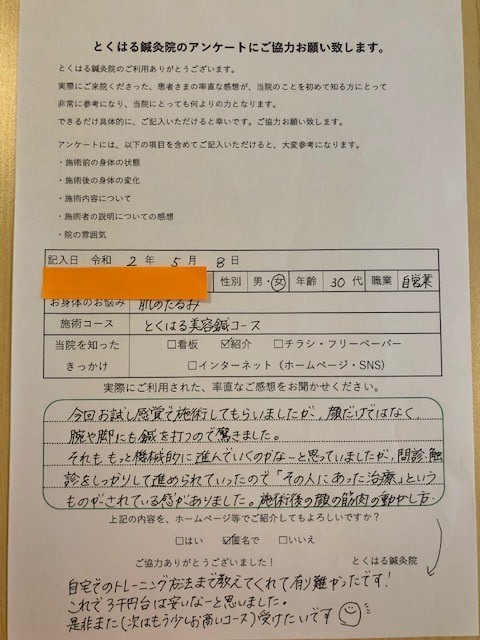 とくはる鍼灸院のアンケートにご協力お願い致します。
とくはる鍼灸院のご利用ありがとうございます。
実際にご来院くださった、患者さまの率直な感想が、当院のことを初めて知る方にとって
非常に参考になり、当院にとっても何よりの力となります。
できるだけ具体的に、ご記入いただけると幸いです。ご協力お願い致します。
アンケートには、以下の項目を含めてご記入いただけると、大変参考になります。
・施術前の身体の状態
・施術後の身体の変化
・施術内容について
・施術者の説明についての感想
・院の雰囲気
記入日 令和 2 年 5 月 8 日
性別 男・女 年齢 30 代 職業 自営業
お身体のお悩み 肌のたるみ
施術コース とくはる美容鍼コース
当院を知った □看板 ☑紹介 □チラシ・フリーペーパー
きっかけ □インターネット（ホームページ・SNS）
実際にご利用された、率直なご感想をお聞かせください。
今回お試し感覚で施術してもらいましたが、顔だけではなく
腕や脚にも鍼を打つので驚きました。
それももっと機械的に進んでいくのかなーと思っていましたが、問診、触
診をしっかりして進められていったので「その人にあった治療」という
ものがされている感がありました。施術後の顔の筋肉の動かし方
上記の内容を、ホームページ等でご紹介してもよろしいですか？
□はい ☑匿名で □いいえ
ご協力ありがとうございました！ とくはる鍼灸院
自宅でのトレーニング方法まで教えてくれて有り難かったです！
これで3千円台は安いなーと思いました。
是非また(次はもう少しお高いコース)受けたいです